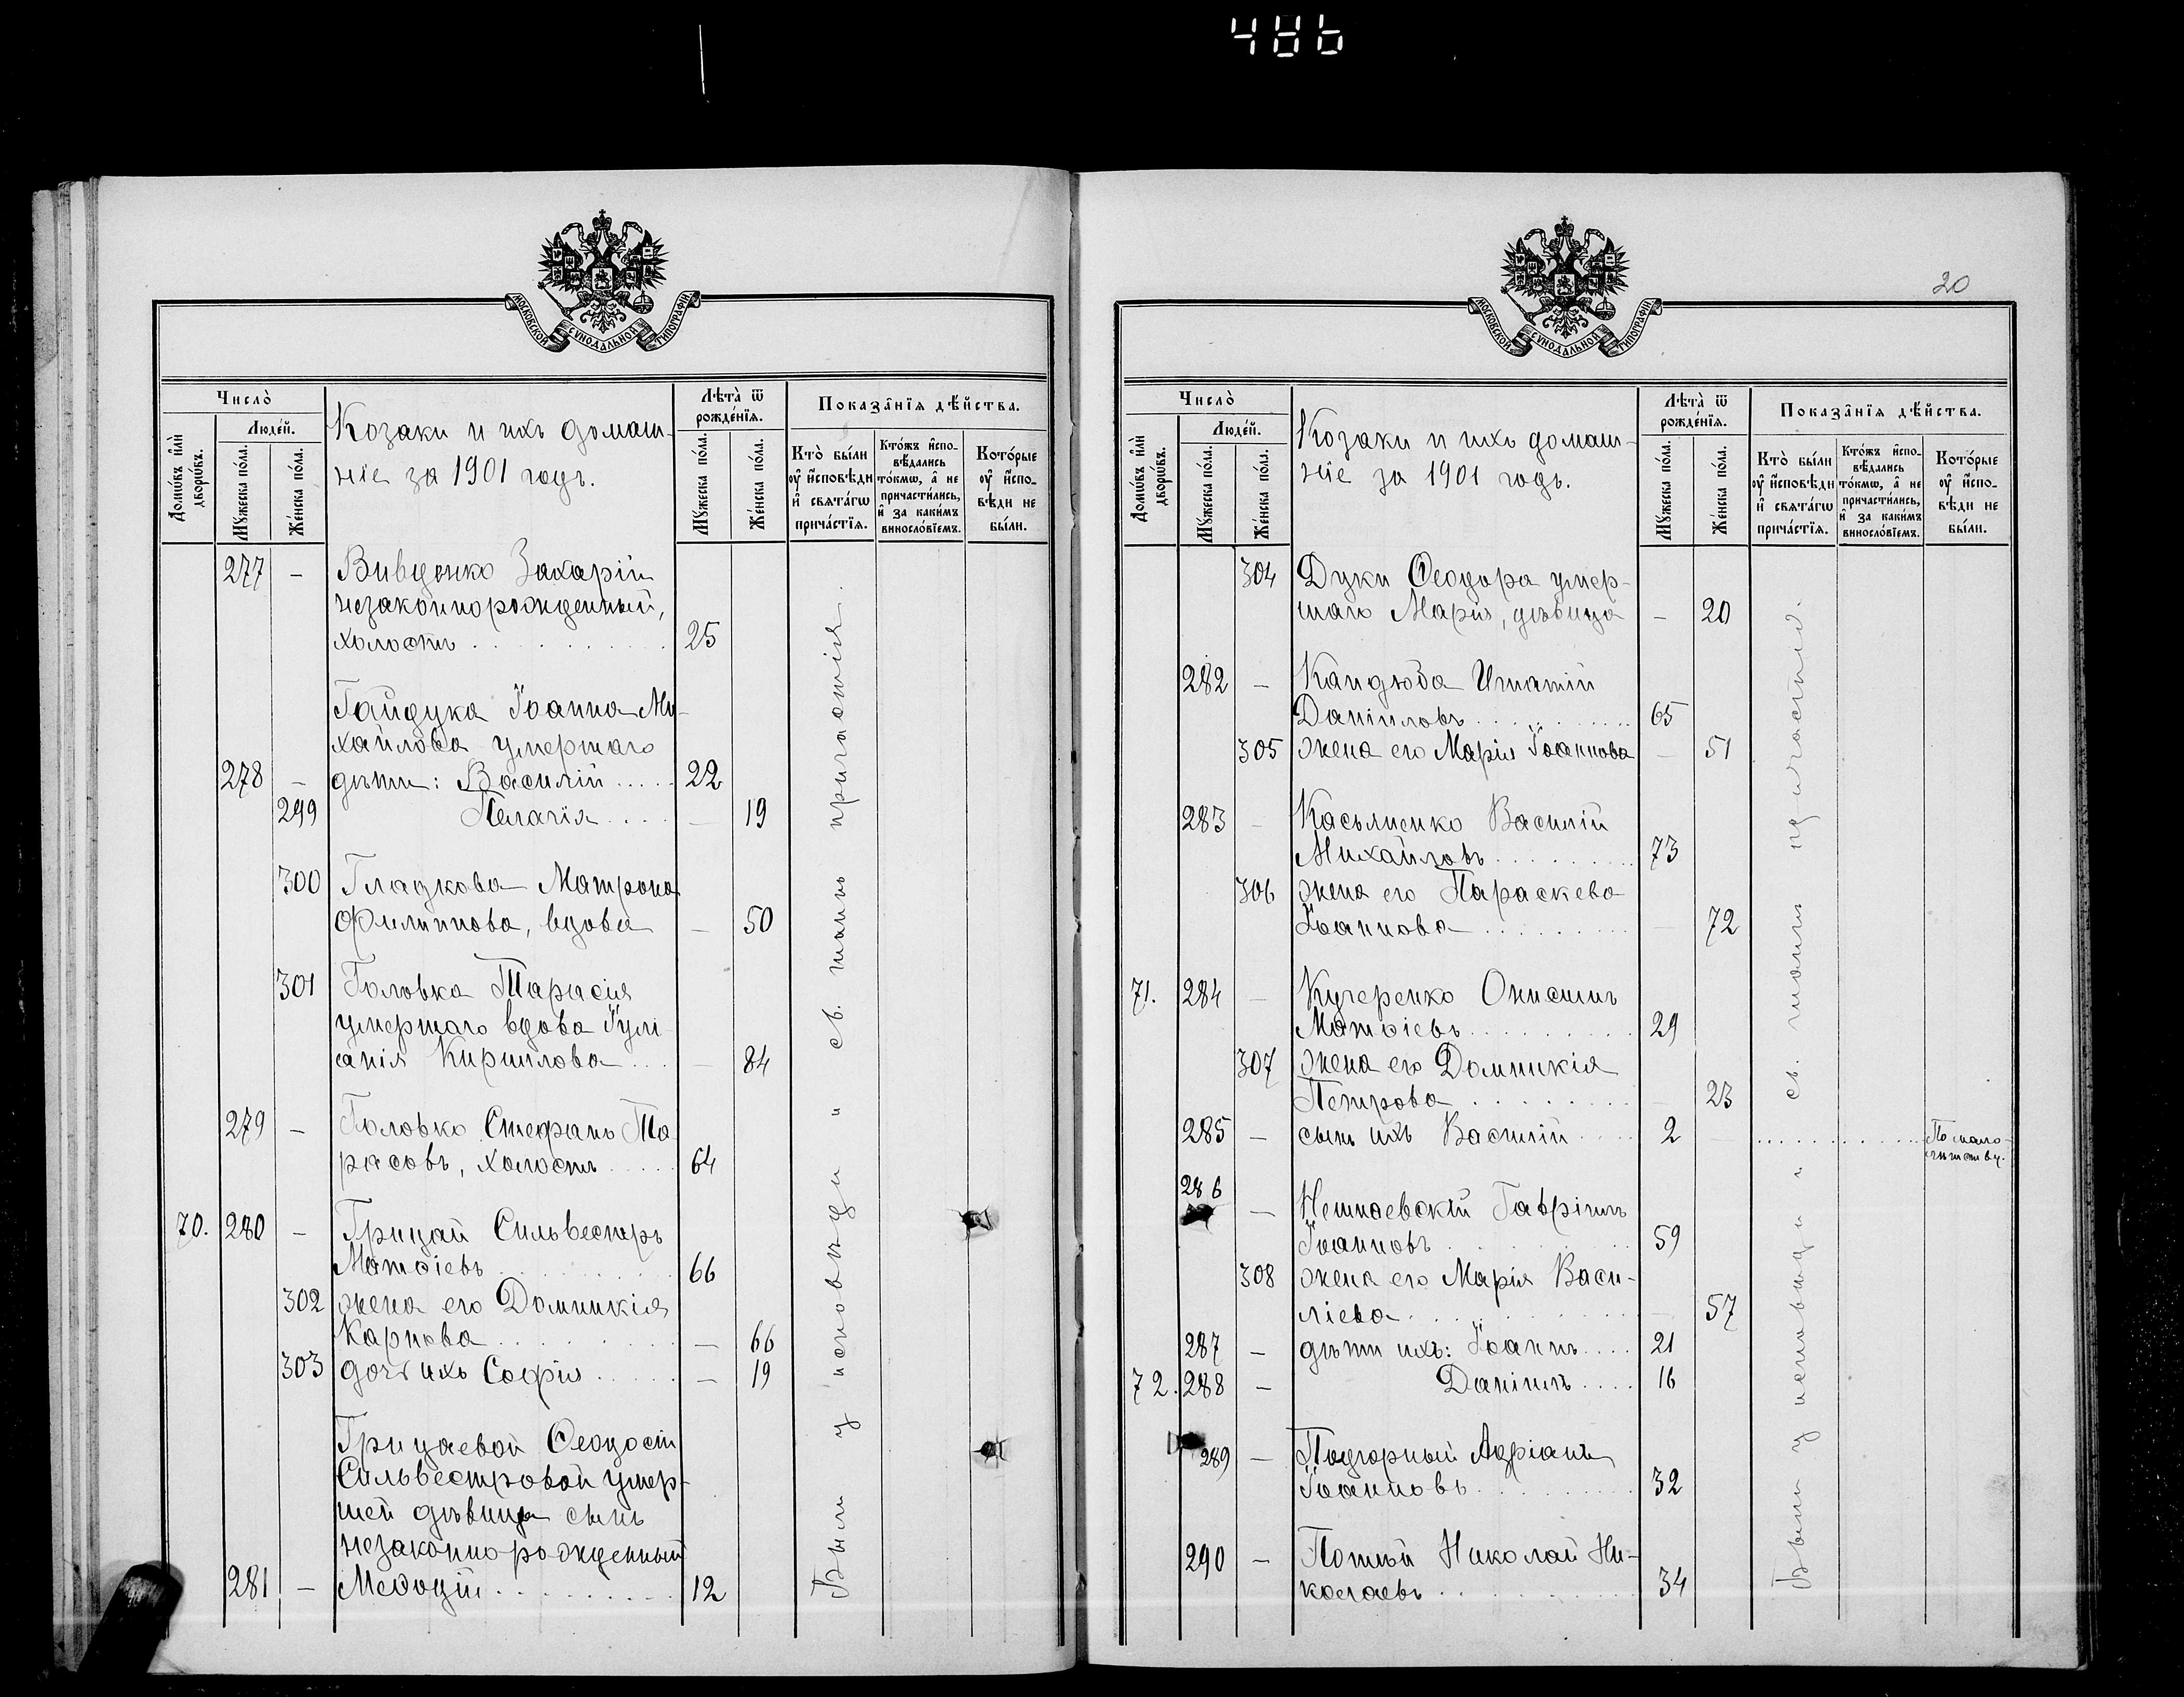 486
МОСКОВСКОЙ СѴНОДАЛЬНОЙ ТИПОГРАФІИ.
Число̀
Домѡ́въ и҆лѝ дворѡ́въ.
Люде́й.
Мꙋ́жеска по́ла.
Же́нска по́ла.
Козаки и ихъ домаш-
ніе за 1901 годъ.
Лѣта̀ ѿ рожде́нїѧ.
Мꙋ́жеска по́ла.
Же́нска по́ла.
Показа̂нїѧ дѣ́йства.
Кто̀ бы́ли оу҆ и҆сповѣ́ди и҆ свѧта́гѡ прича́стїѧ.
Кто́жъ и҆спо-
вѣ́дались то́кмѡ, а҆ не причасти́лись, и҆ за каки́мъ винословїемъ.
Кото́рые оу҆ и҆спо-
вѣди не бы́ли.
277 – Вивденко Захарій
незаконнорожденный,
холостъ . . . . . . . . . . 25
Гайдука Іоанна Ми-
хайлова умершаго
278 – дѣти: Василій . . . . . 22
299 Пелагія . . . . – 19
300 Гладкова Матрона
Филиппова, вдова – 50
301 Головка Тарасія
умершаго вдова Іулі
анія Кириллова . . . – 84
279 – Головко Стефанъ Та
расовъ, холостъ . . . . . 64
70. 280 – Грицай Сильвестръ
Матѳіевъ . . . . . . . . . 66
302 жена его Домникія
Карпова . . . . . . . . . – 66
303 дочь ихъ Софія . . . . . – 19
Грицаевой Ѳеодосіи
Сильвестровой умер-
шей дѣвицы сынъ
незаконнорожденный
281 – Меѳодій . . . . . . . . . 12
Были у исповѣди и св. таинъ причастія.
20
МОСКОВСКОЙ СѴНОДАЛЬНОЙ ТИПОГРАФІИ.
Число̀
Домѡ́въ и҆лѝ дворѡ́въ.
Люде́й.
Мꙋ́жеска по́ла.
Же́нска по́ла.
Козаки и ихъ домаш-
ніе за 1901 годъ.
Лѣта̀ ѿ рожде́нїѧ.
Мꙋ́жеска по́ла.
Же́нска по́ла.
Показа̂нїѧ дѣ́йства.
Кто̀ бы́ли оу҆ и҆сповѣ́ди и҆ свѧта́гѡ прича́стїѧ.
Кто́жъ и҆спо-
вѣ́дались то́кмѡ, а҆ не причасти́лись, и҆ за каки́мъ винословїемъ.
Кото́рые оу҆ и҆спо-
вѣди не бы́ли.
304 Дуки Ѳеодора умер-
шаго Марія, дѣвица – 20
282 – Кандюба Игнатій
Даніиловъ . . . . . . . . . 65
305 жена его Марія Іоаннова – 51
283 – Касьяненко Василій
Михайловъ . . . . . . . . . 73
306 жена его Параскева
Іоаннова . . . . . . . . . – 72
71. 284 – Кучеренко Онисимъ
Матѳіевъ . . . . . . . . . 29
307 жена его Домникія
Петрова . . . . . . . . . – 23
285 – сынъ ихъ Василій . . . . 2 – . . . . . . . . . . . . По мало-
лѣтству.
286
– Гавріилъ
Іоанновъ . . . . . . . . . 59
308 жена его Марія Васи-
ліева . . . . . . . . . . – 57
287 – дѣти ихъ: Іоаннъ . . . . 21
72. 288 – Даніилъ . . . . 16
289 – Подгорный Адріанъ
Іоанновъ . . . . . . . . . 32
290 – Николай Ни-
колаевъ . . . . . . . . . 34
Были у исповѣди и св. таинъ причастія.